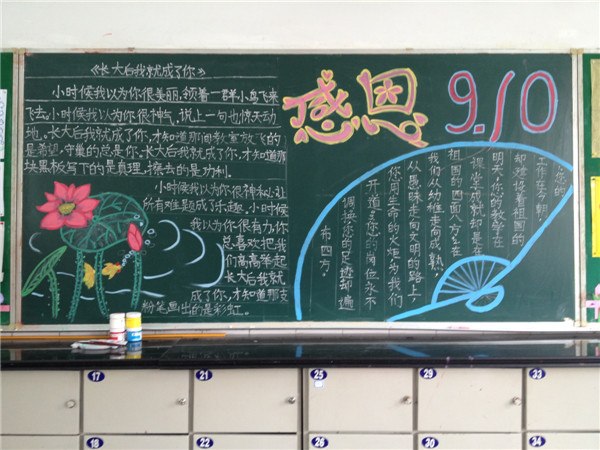 《长大后我就成了你》
小时候我以为你很美丽,领着一群小鸟飞来
飞去。小时候我以为你很神气,说上一句也惊天动
地。长大后我就成了你,才知道那间教室放飞的
是希望,守巢的总是你。长大后我就成了你,才知道那
块黑板写下的是真理,擦去的是功利。
小时候我以为你很神秘,让
所有难题成了乐趣。小时候
我以为你很有力,你
总喜欢把我
们高高举起
长大后我就
成了你,才知道那支
粉笔画出的是彩虹。
感恩 9.10
您的
工作在今朝,
却建设着祖国的
明天;您的教学在
课堂,成就却是在
祖国的四面八方。在
我们从幼稚走向成熟,
从愚昧走向文明的路上,
您用生命的火炬为我们
开道。您的岗位永不
调换,您的足迹却遍
布四方。
17 21 25 29 33
18 22 26 30 34